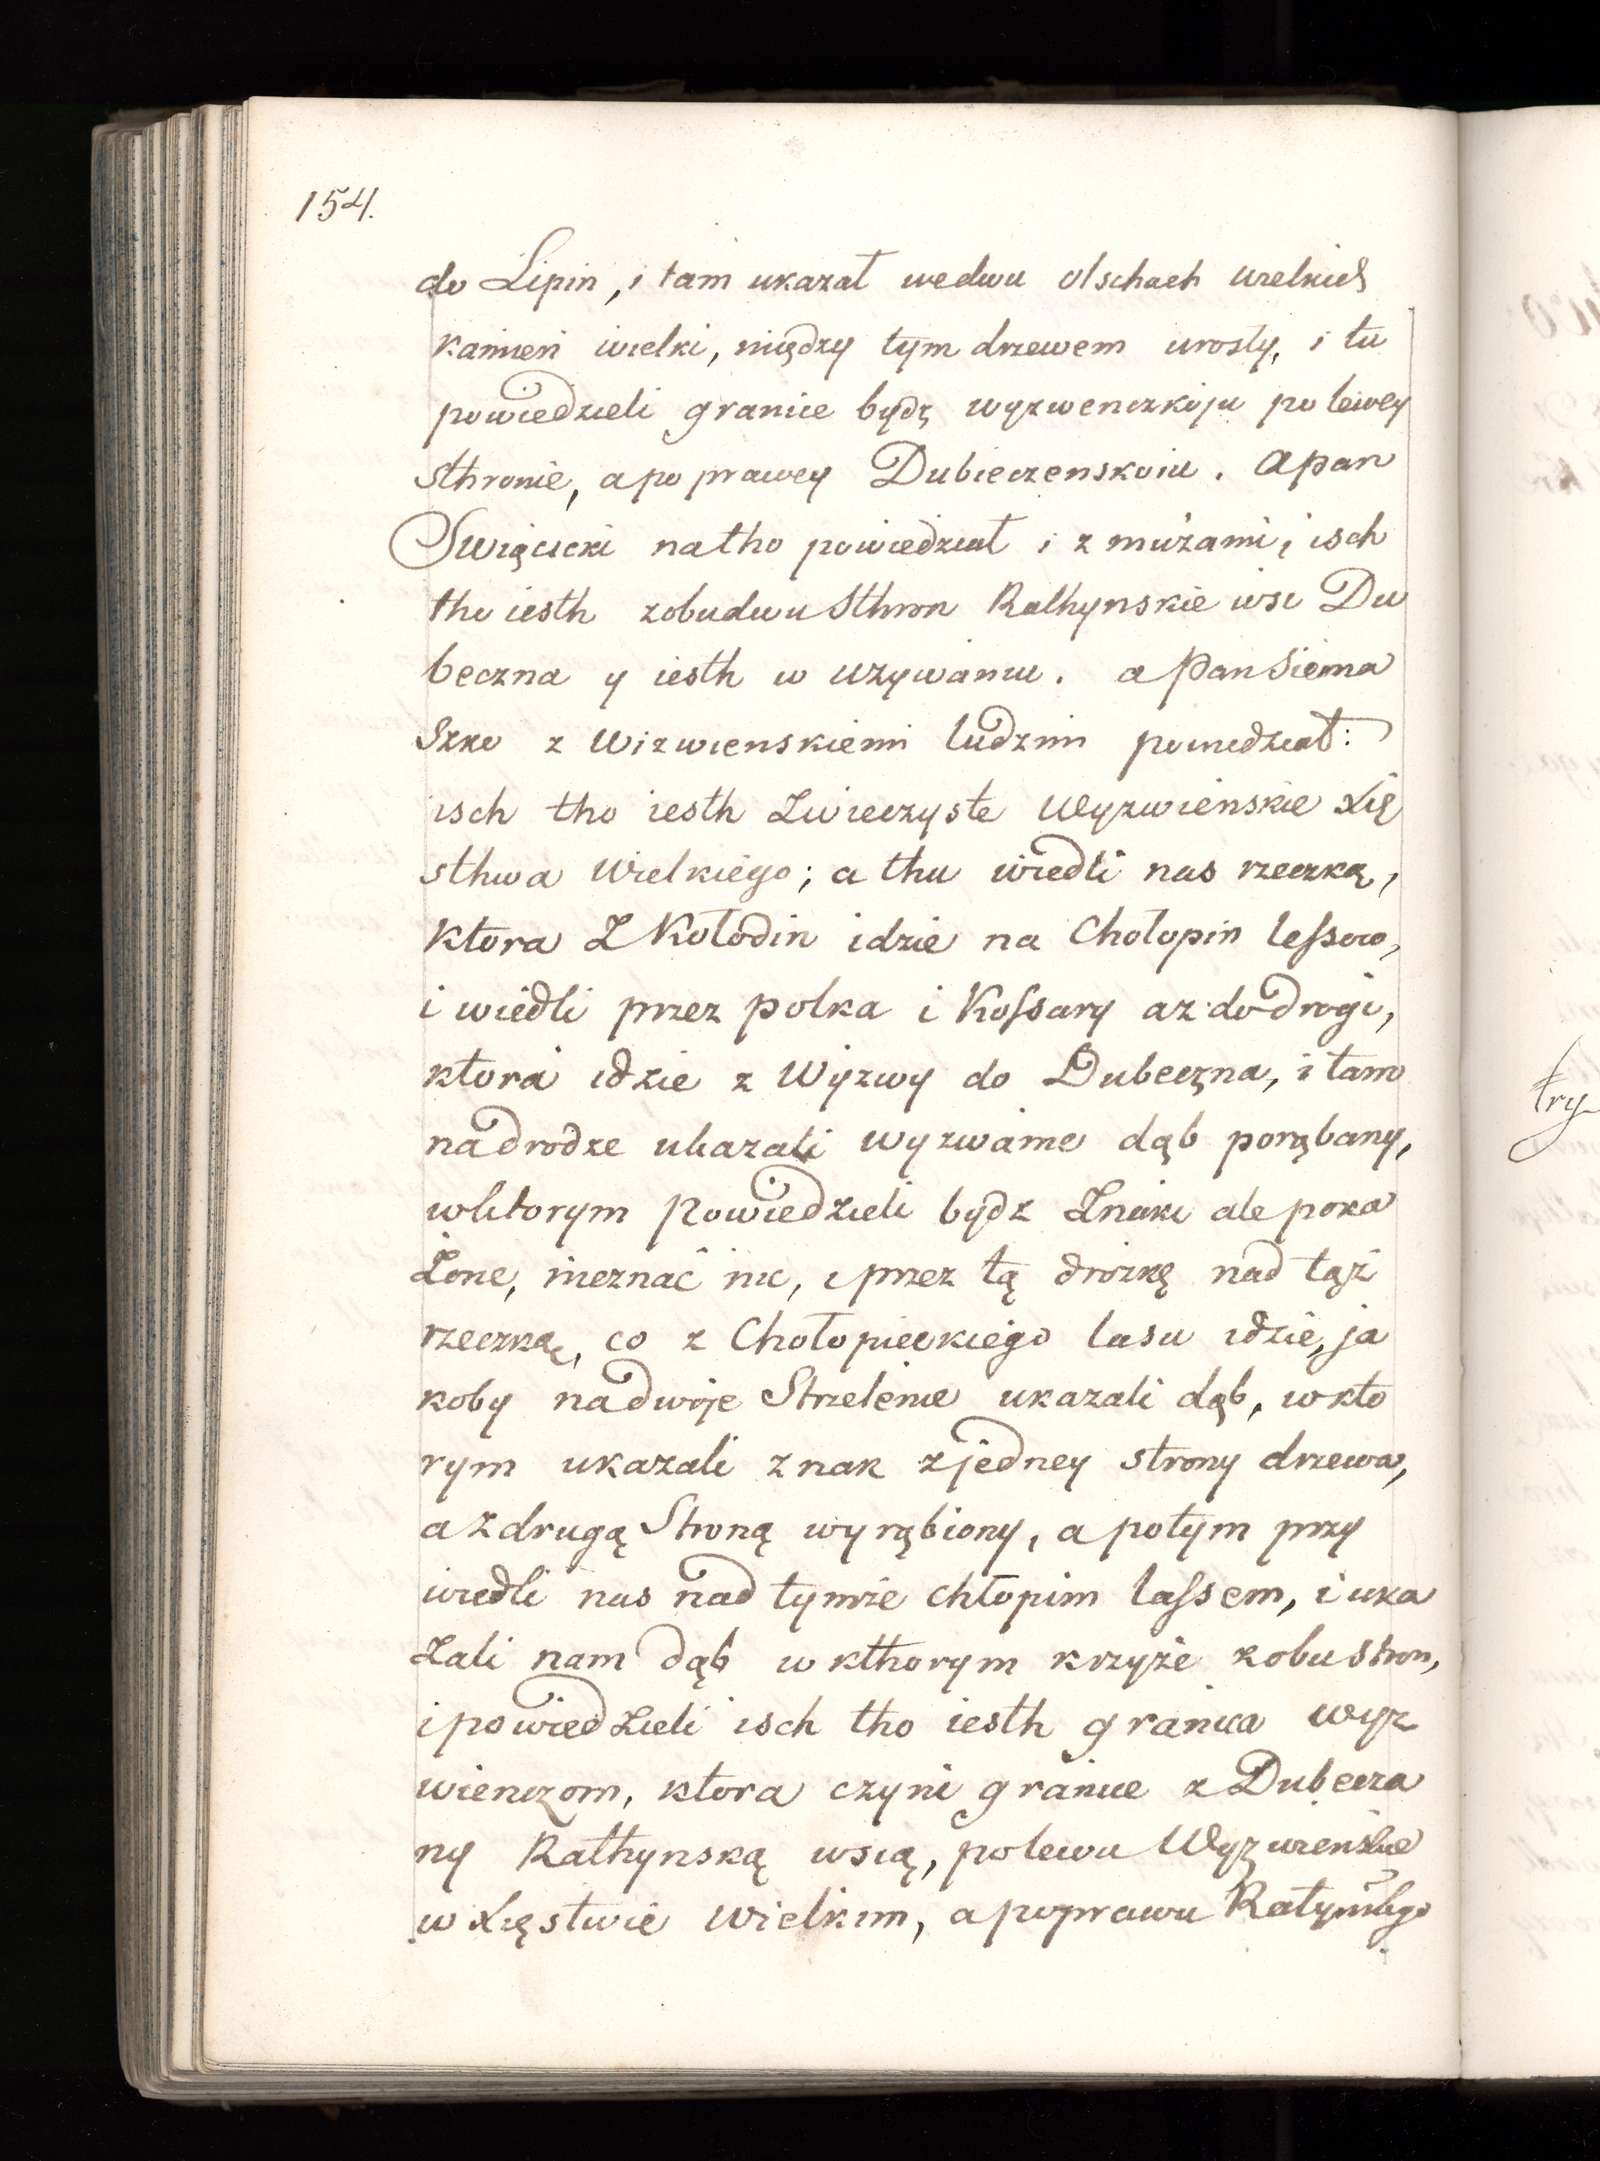 154.
do Lipin, i tam ukazał wedwu olschach wielkich
kamień wielki, między tym drzewem urosły, i tu
powiedzieli granice bydź wyzwenczkoju po lewey
sthronie, a po prawey Dubieczenskoiu. a pan
Swięcicki natho powiedział i z mużami, isch
tho iesth zobudwu sthron Rathynskie wsi Du
beczna y iesth w używaniu. a Pan Siema
szko z Wizwienskiemi ludzmi powiedział:
isch tho iesth Zwieczyste Wyzwienskie Xię
sthwa Wielkiego; a thu wiedli nas rzeczką,
ktora Z Kołodin idzie na Chołopin lessow,
i wiedli przez polka i Kossary az do drogi,
ktora idzie z Wyzwy do Dubeczna, i tam
na drodze ukazali wyzwanie dąb porąbany,
wktorym Powiedzieli bydź Znaki ale poka
żone, nieznać nic, i przez tą drożkę nad tąż
rzeczką, co z Chołopieckiego lasu idzie, ja
koby na dwoje Strzelenie ukazali dąb, w kto
rym ukazali znak z jedney strony drzewa,
a z drugą Stroną wyrąbiony, a potym przy
wiedli nas nad tymże chłopim lassem, i uka
zali nam dąb w kthorym krzyże zobu stron,
i powiedzieli isch tho iesth granica wyz
wienczom, ktora czyni granice z Dubecza
ny Rathynską wsią, po lewu Wyzwienskie
w Xięstwie Wielkim, a poprawu Ratynskiego
try